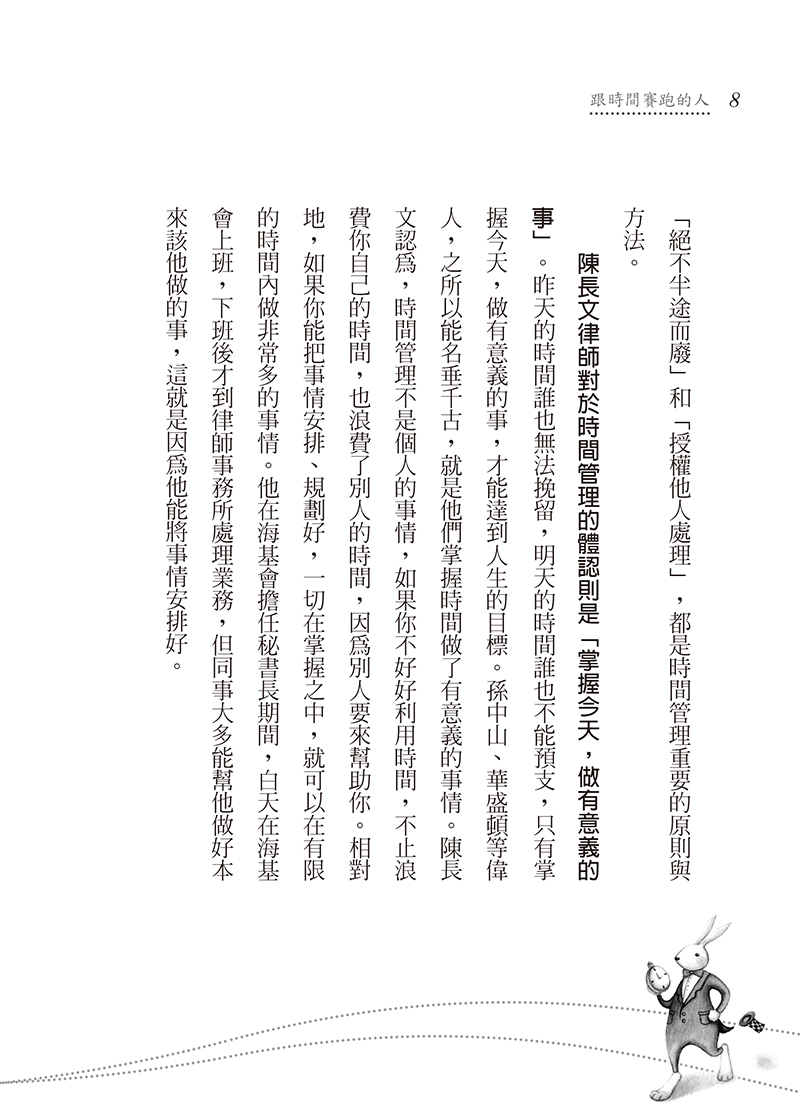 跟時間賽跑的人 8
「絕不半途而廢」和「授權他人處理」，都是時間管理重要的原則與
方法。
陳長文律師對於時間管理的體認則是「掌握今天，做有意義的
事」。昨天的時間誰也無法挽留，明天的時間誰也不能預支，只有掌
握今天，做有意義的事，才能達到人生的目標。孫中山、華盛頓等偉
人，之所以能名垂千古，就是他們掌握時間做了有意義的事情。陳長
文認為，時間管理不是個人的事情，如果你不好好利用時間，不止浪
費你自己的時間，也浪費了別人的時間，因為別人要來幫助你。相對
地，如果你能把事情安排、規劃好，一切在掌握之中，就可以在有限
的時間內做非常多的事情。他在海基會擔任秘書長期間，白天在海基
會上班，下班後才到律師事務所處理業務，但同事大多能幫他做好本
來該他做的事，這就是因為他能將事情安排好。